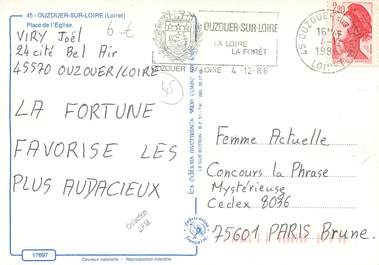 45 - OUZOUER-SUR-LOIRE (Loiret)
Place de l'Église.
6 €
VIRY Joël
24 cité Bel Air
45570 OUZOUER/LOIRE
45
LA FORTUNE
FAVORISE LES
PLUS AUDACIEUX
Collection
17697
Couleur naturelle - Reproduction interdite
OUZOUER-SUR-LOIRE
LA LOIRE
LA FORÊT
OUZOUER LOIRE 4-12-86
45 OUZOUER
16H
4-12
198
LOIRET
2,20
Fabrication
Française
Femme Actuelle
Concours la Phrase
Mystérieuse
Cedex 8096
75601 PARIS Brune.